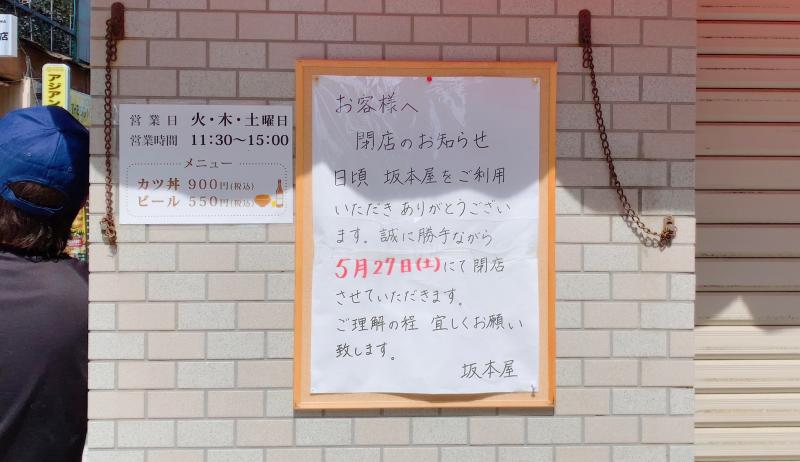 店
アジアン
営業日 火・木・土曜日
営業時間 11:30～15:00
メニュー
カツ丼 900円(税込)
ビール 550円(税込)
お客様へ
閉店のお知らせ
日頃 坂本屋をご利用
いただき ありがとうござい
ます。誠に勝手ながら
5月27日(土)にて閉店
させていただきます。
ご理解の程 宜しくお願い
致します。
坂本屋